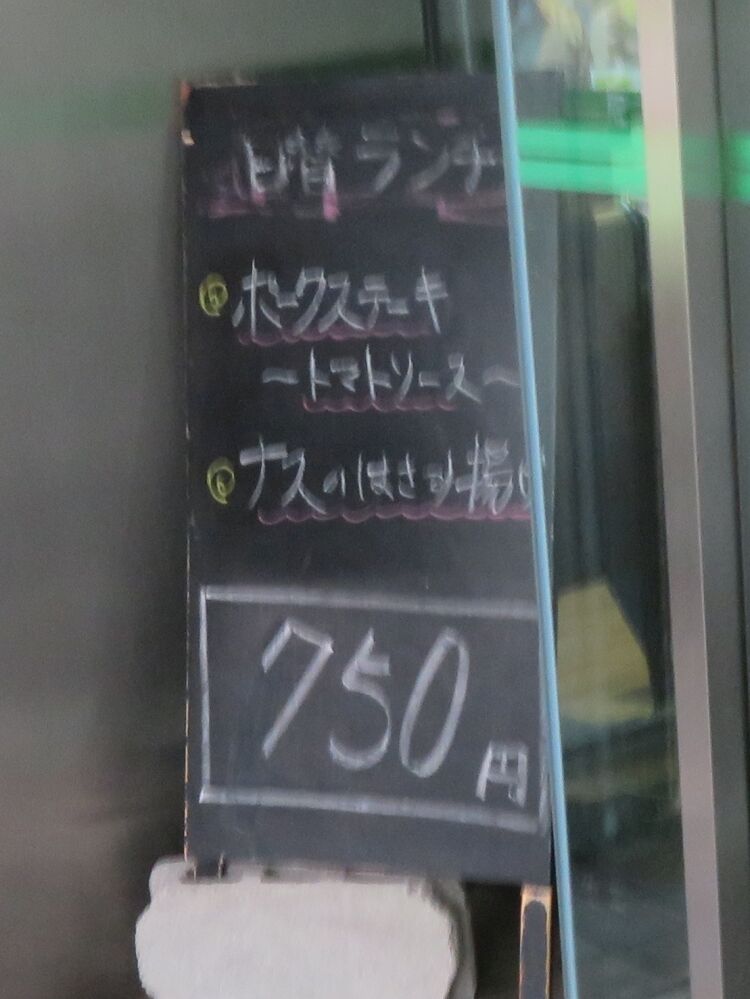 日替ランチ
ポークステーキ
～トマトソース～
ナスのはさみ揚げ
750円